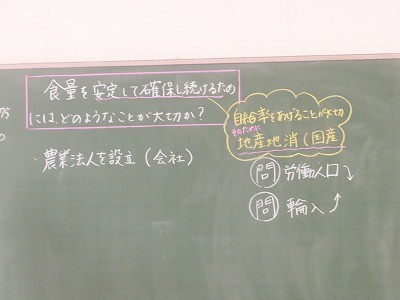 食量を安定して確保し続けるため
には、どのようなことが大切か?
自給率をあげることが大切
そのために
地産地消(国産
・農業法人を設立(会社)
問 労働人口↓
問 輸入↑